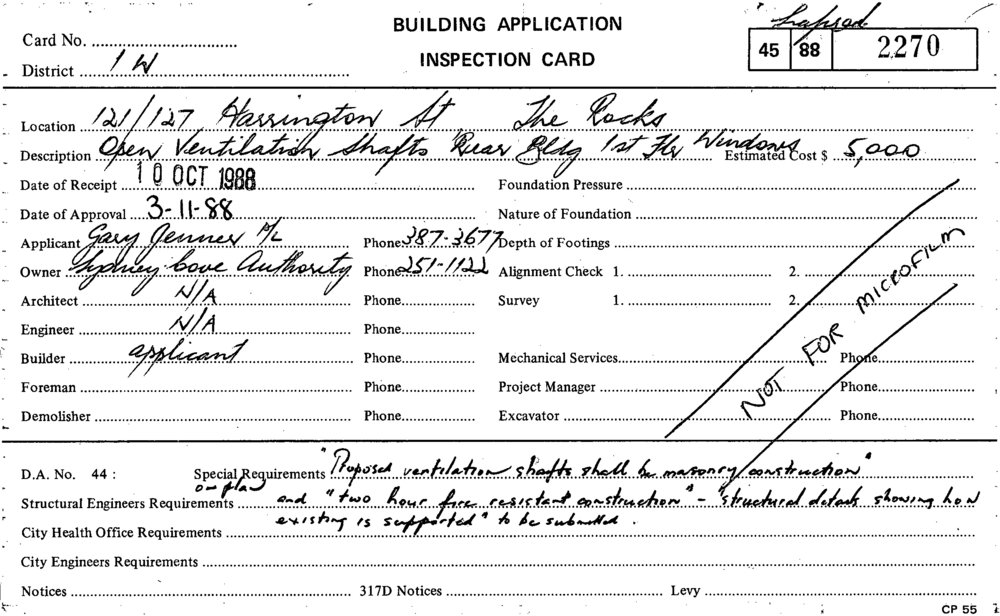 BUILDING APPLICATION
INSPECTION CARD
Lapsed
45 88 2270
Card No.
District 1 W
Location 121/127 Harrington St The Rocks
Description Open Ventilation Shafts Rear Bldg 1st Flr Windows Estimated Cost $ 5,000
Date of Receipt 10 OCT 1988 Foundation Pressure
Date of Approval 3-11-88 Nature of Foundation
Applicant Gary Jenner P/L Phone 387-3677 Depth of Footings
Owner Sydney Cove Authority Phone 251-1122 Alignment Check 1. 2.
Architect N/A Phone Survey 1. 2.
Engineer N/A Phone
Builder applicant Phone Mechanical Services Phone
Foreman Phone Project Manager Phone
Demolisher Phone Excavator Phone
NOT FOR MICROFILM
D.A. No. 44 : Special Requirements "Proposed ventilation shafts shall be masonry construction"
on plan
Structural Engineers Requirements and "two hour fire resistant construction" - "structural details showing how
existing is supported" to be submitted.
City Health Office Requirements
City Engineers Requirements
Notices 317D Notices Levy
CP 55